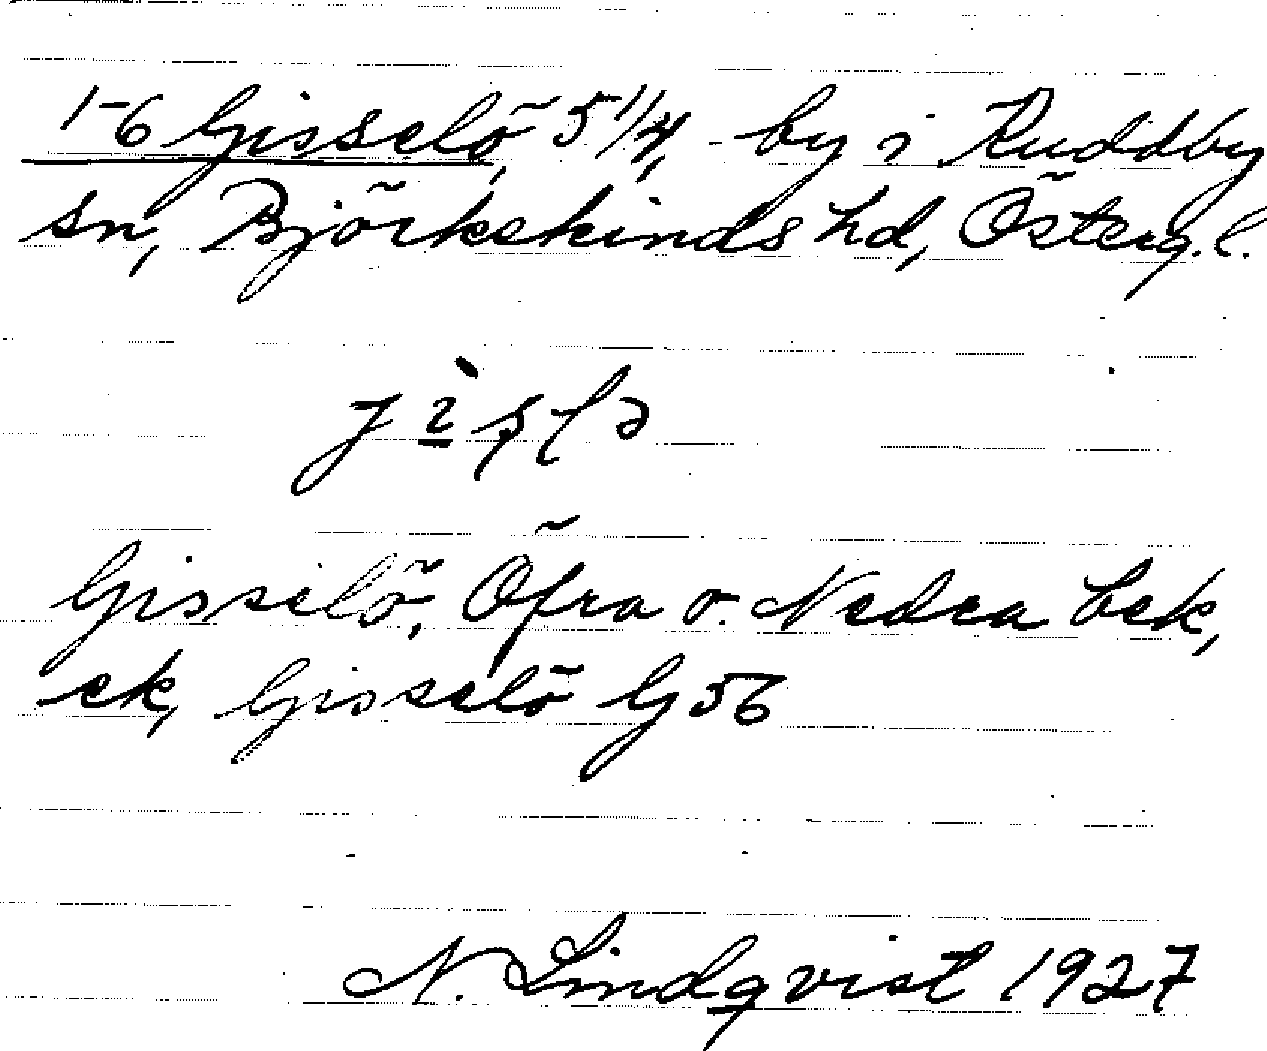 1-6 Gisselö, 5 1/4, by i Ruddby
sn, Björkekinds hd, Österg.l.
Gisselö, Öfra o. Nedra bek,
ek, Gisselö G 56
N. Lindqvist 1927